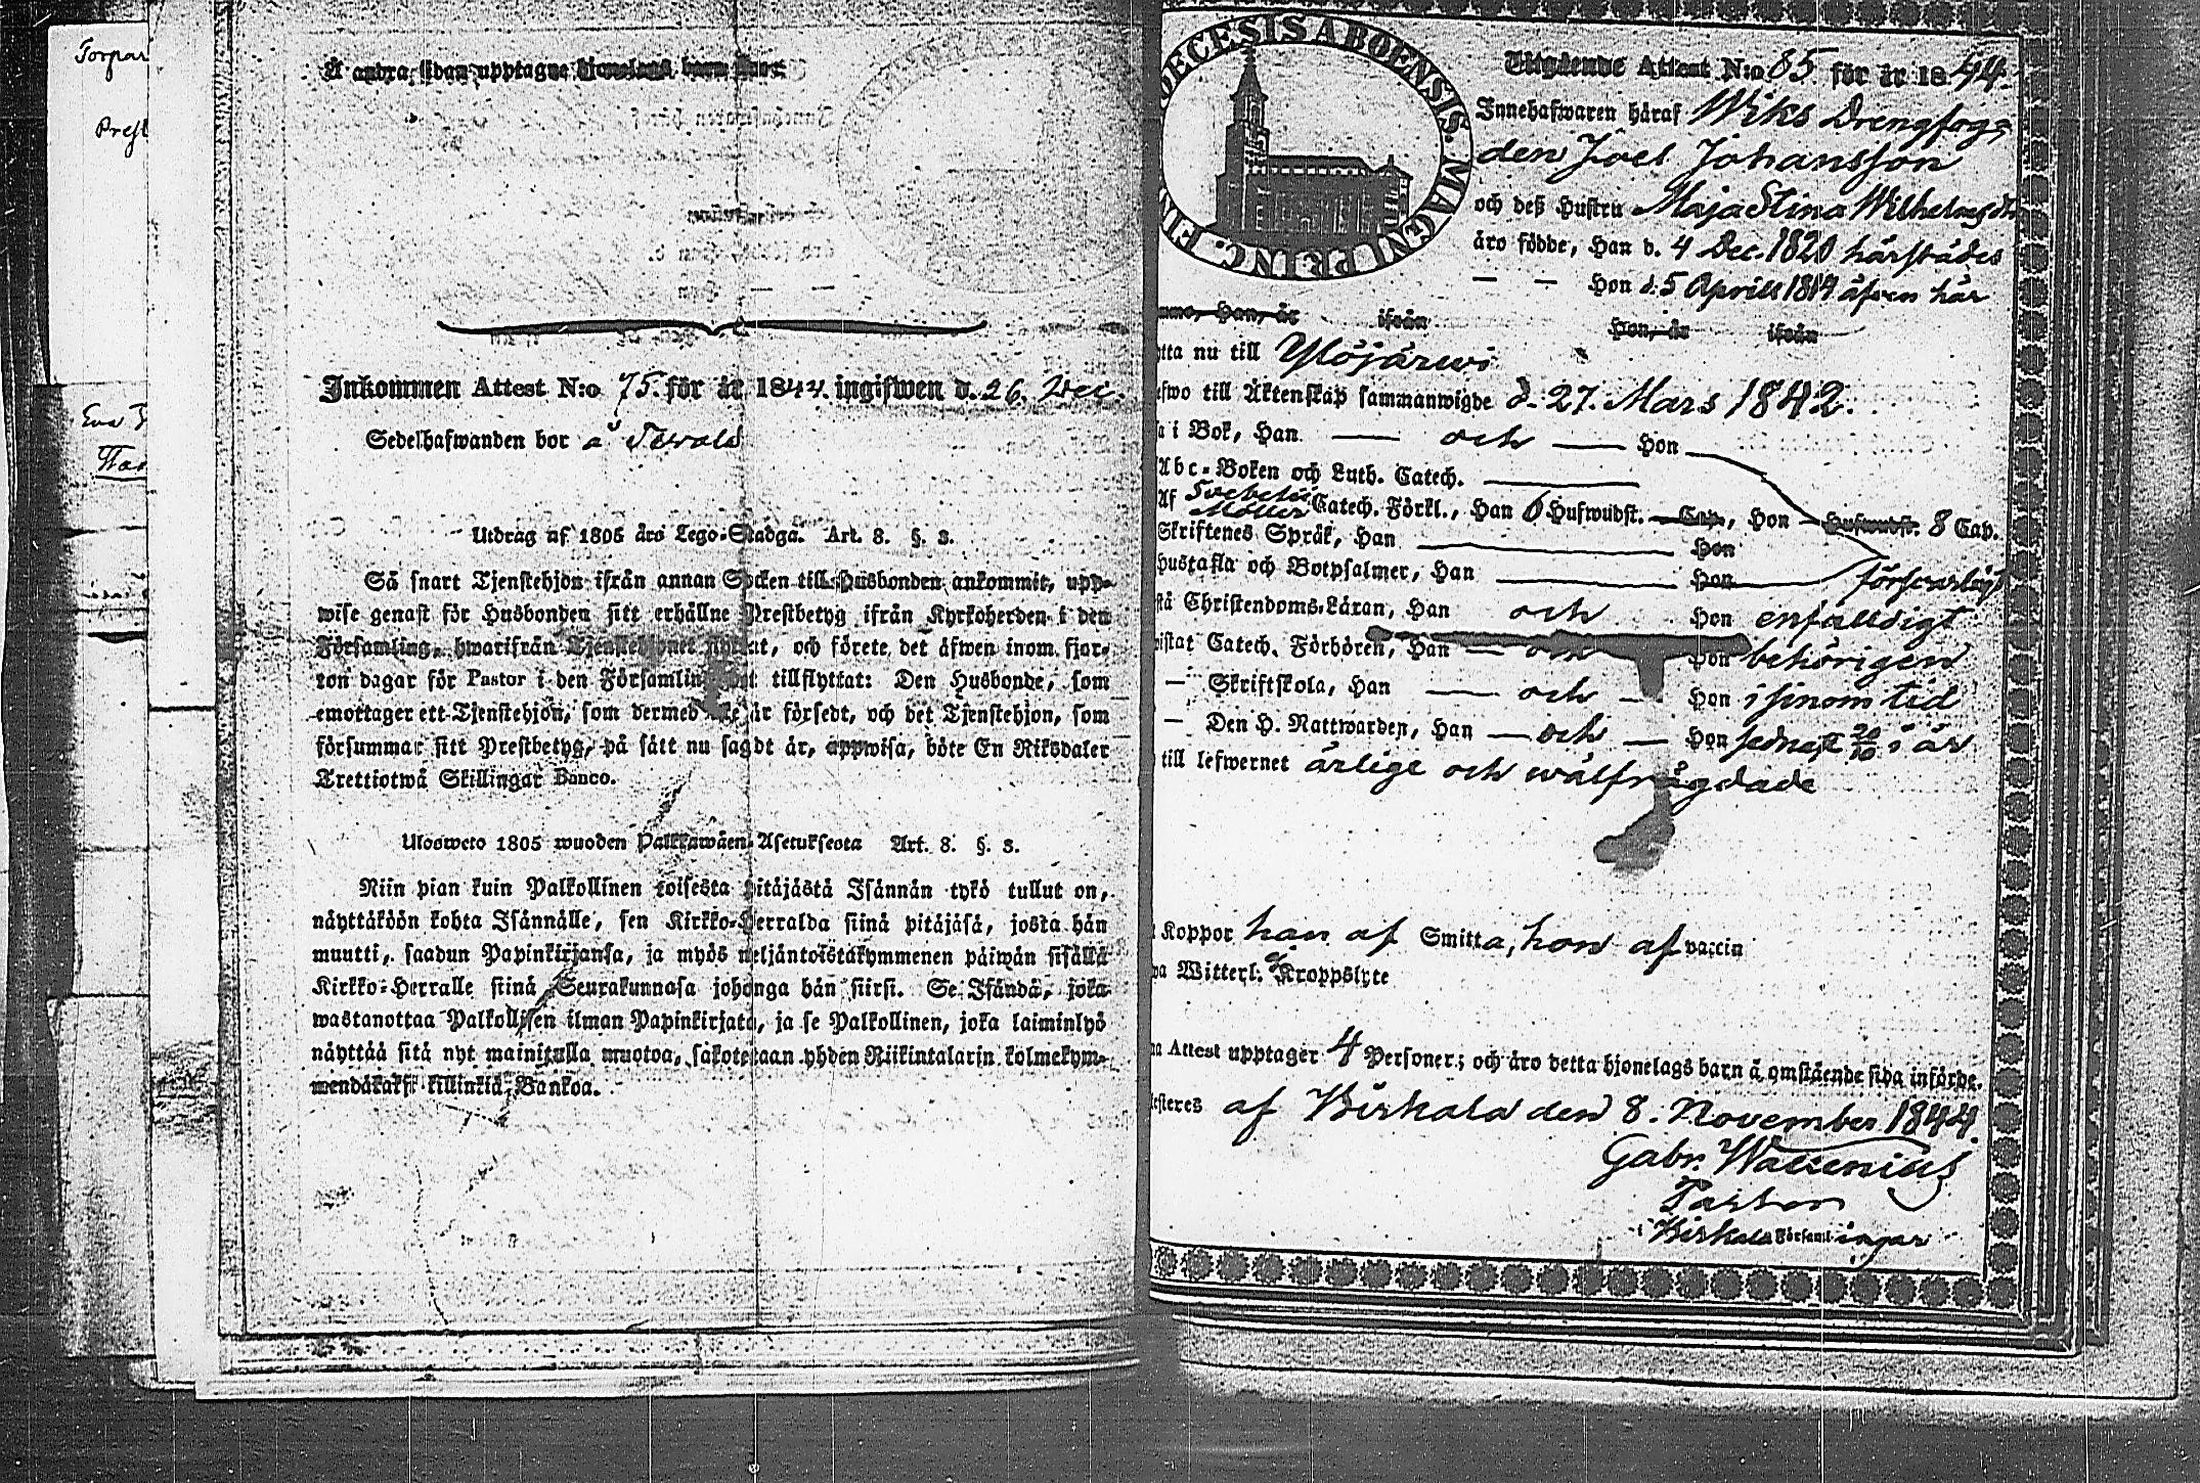 Torpar
Prest
Å andra sidan upptagne hjonelags barn äro:
Inkommen Attest N:o 75. för år 1844. ingifwen d. 26. Dec.
Sedelhafwanden bor å
Utdrag af 1805 års Lego-Stadga. Art. 8. §. 3.
Så snart Tjenstehjon ifrån annan Socken till Husbonden ankommit, upp-
wise genast för Husbonden sitt erhållne Prestbetyg ifrån Kyrkoherden i den
Församling, hwarifrån Tjenstehjonet flyttat, och förete det äfwen inom fjor-
ton dagar för Pastor i den Församling dit tillflyttat: Den Husbonde, som
emottager ett Tjenstehjon, som dermed icke är försedt, och det Tjenstehjon, som
försummar sitt Prestbetyg, på sätt nu sagdt är, uppwisa, böte En Riksdaler
Trettiotwå Skillingar Banco.
Ulosweto 1805 wuoden Palkkawäen-Asetuksesta Art. 8. §. 3.
Niin pian kuin Palkollinen toisesta pitäjästä Isännän tykö tullut on,
näyttäköön kohta Isännälle, sen Kirkko-Herralda siinä pitäjäsä, josta hän
muutti, saadun Papinkirjansa, ja myös neljäntoistakymmenen päiwän sisällä
Kirkko-Herralle siinä Seurakunnasa johonga hän siirsi. Se Isändä, joka
wastanottaa Palkollisen ilman Papinkirjata, ja se Palkollinen, joka laiminlyö
näyttää sitä nyt mainitulla muotoa, sakotetaan yhden Riikintalarin kolmekym-
mendäkaksi killinkiä Bankoa.
DECESIS ABOENSIS. MAGNI PRINC. FIN
Utgående Attest N:o 85 för år 1844.
Innehafwaren häraf Wiks Drengfog=
den Joel Johansson
och deß Hustru Maja Stina Wilhelmsdr
äro födde, Han d. 4 Dec. 1820 härstädes
— — Hon d. 5 Aprill 1814 äfven här
Han, är ifrån Hon, är ifrån
tta nu till Ylöjärwi
efwo till Äktenskap sammanwigde d. 27. Mars 1842.
a i Bok, Han — och — Hon
Abc-Boken och Luth. Catech.
Af Svebelii Möllers Catech. Förkl., Han 6 Hufwudst. Cap., Hon Hufwudst. 8 Cap.
Skriftenes Språk, Han — Hon
Hustafla och Botpsalmer, Han — Hon försvarligt
stå Christendoms-Läran, Han och Hon enfaldigt
istat Catech. Förhören, Han — och Hon behörigen
— Skriftskola, Han — och — Hon i sinom tid
— Den H. Nattwarden, Han — och — Hon sednast 20/10 i år
till lefwernet ärlige och wälfrägdade
Koppor han af Smitta, hon af vaccin
wa Witterl: a Kroppslyte
na Attest upptager 4 Personer; och äro detta hjonelags barn å omstående sida införde.
esteres af Birkala den 8. November 1844.
Gabr. Wallenius
Pastor
i Birkala Församlingar